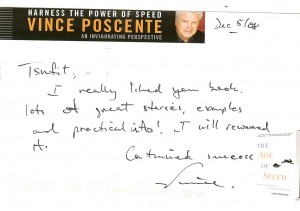 HARNESS THE POWER OF SPEED
VINCE POSCENTE
AN INVIGORATING PERSPECTIVE
Dec 5/08
I really liked your book.
lots of great stories, examples
and practical info! I will recommend
it.
Continued success
Vince
THE
AGE
OF
SPEED